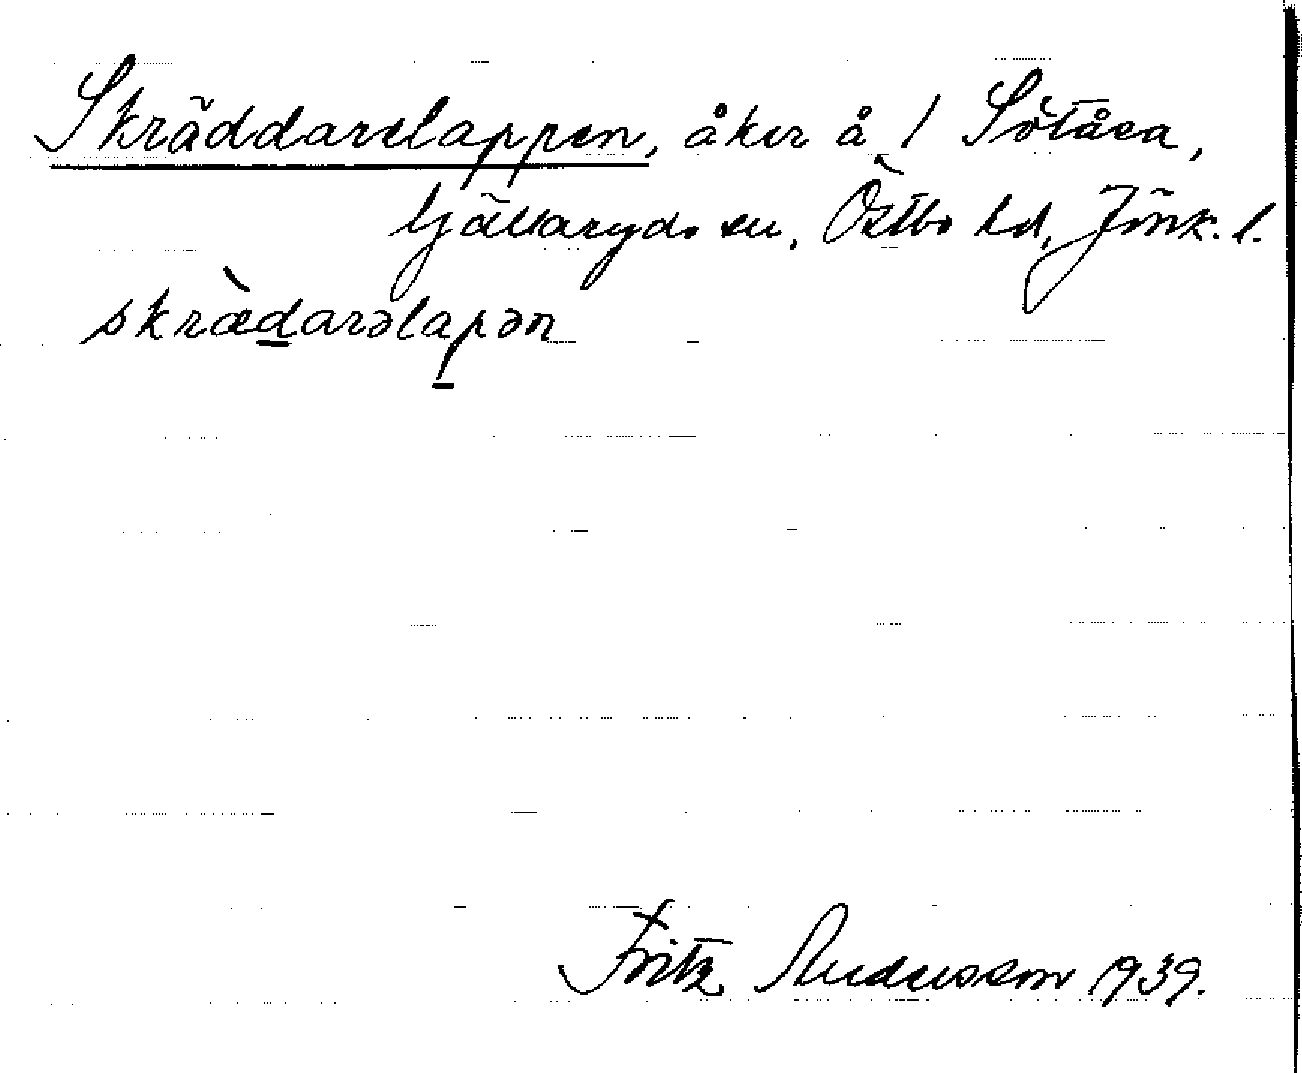 Skräddarelappen, åker å 1 Sötåsa,
Tjällaryds sn, Östbo hd, Jönk. l.
skrædarəlapən
Fritz Andersson 1939.